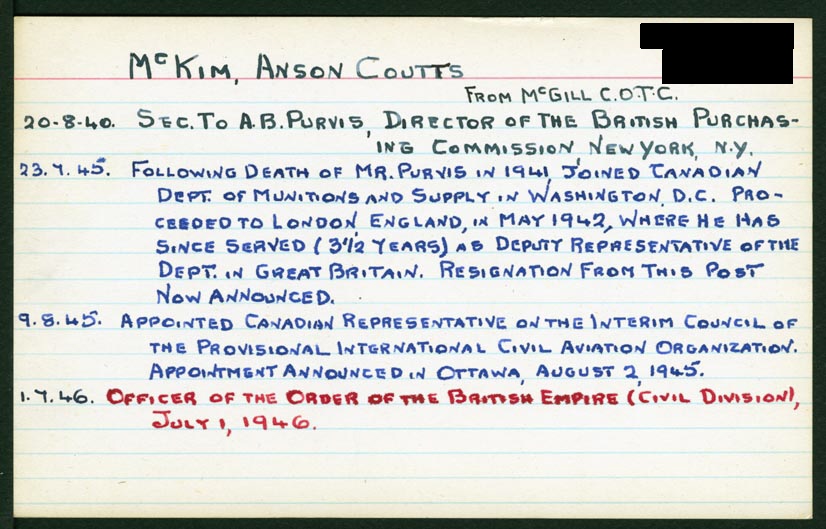 McKIM, ANSON COUTTS
FROM McGILL C.O.T.C.
20-8-40. SEC. TO A.B. PURVIS, DIRECTOR OF THE BRITISH PURCHAS-
ING COMMISSION, NEW YORK, N.Y.
23.7.45. FOLLOWING DEATH OF MR. PURVIS IN 1941, JOINED CANADIAN
DEPT. OF MUNITIONS AND SUPPLY IN WASHINGTON, D.C. PRO-
CEEDED TO LONDON, ENGLAND, IN MAY 1942, WHERE HE HAS
SINCE SERVED (3½ YEARS) AS DEPUTY REPRESENTATIVE OF THE
DEPT. IN GREAT BRITAIN. RESIGNATION FROM THIS POST
NOW ANNOUNCED.
9.8.45. APPOINTED CANADIAN REPRESENTATIVE ON THE INTERIM COUNCIL OF
THE PROVISIONAL INTERNATIONAL CIVIL AVIATION ORGANIZATION.
APPOINTMENT ANNOUNCED IN OTTAWA, AUGUST 2, 1945.
1.7.46. OFFICER OF THE ORDER OF THE BRITISH EMPIRE (CIVIL DIVISION),
JULY 1, 1946.